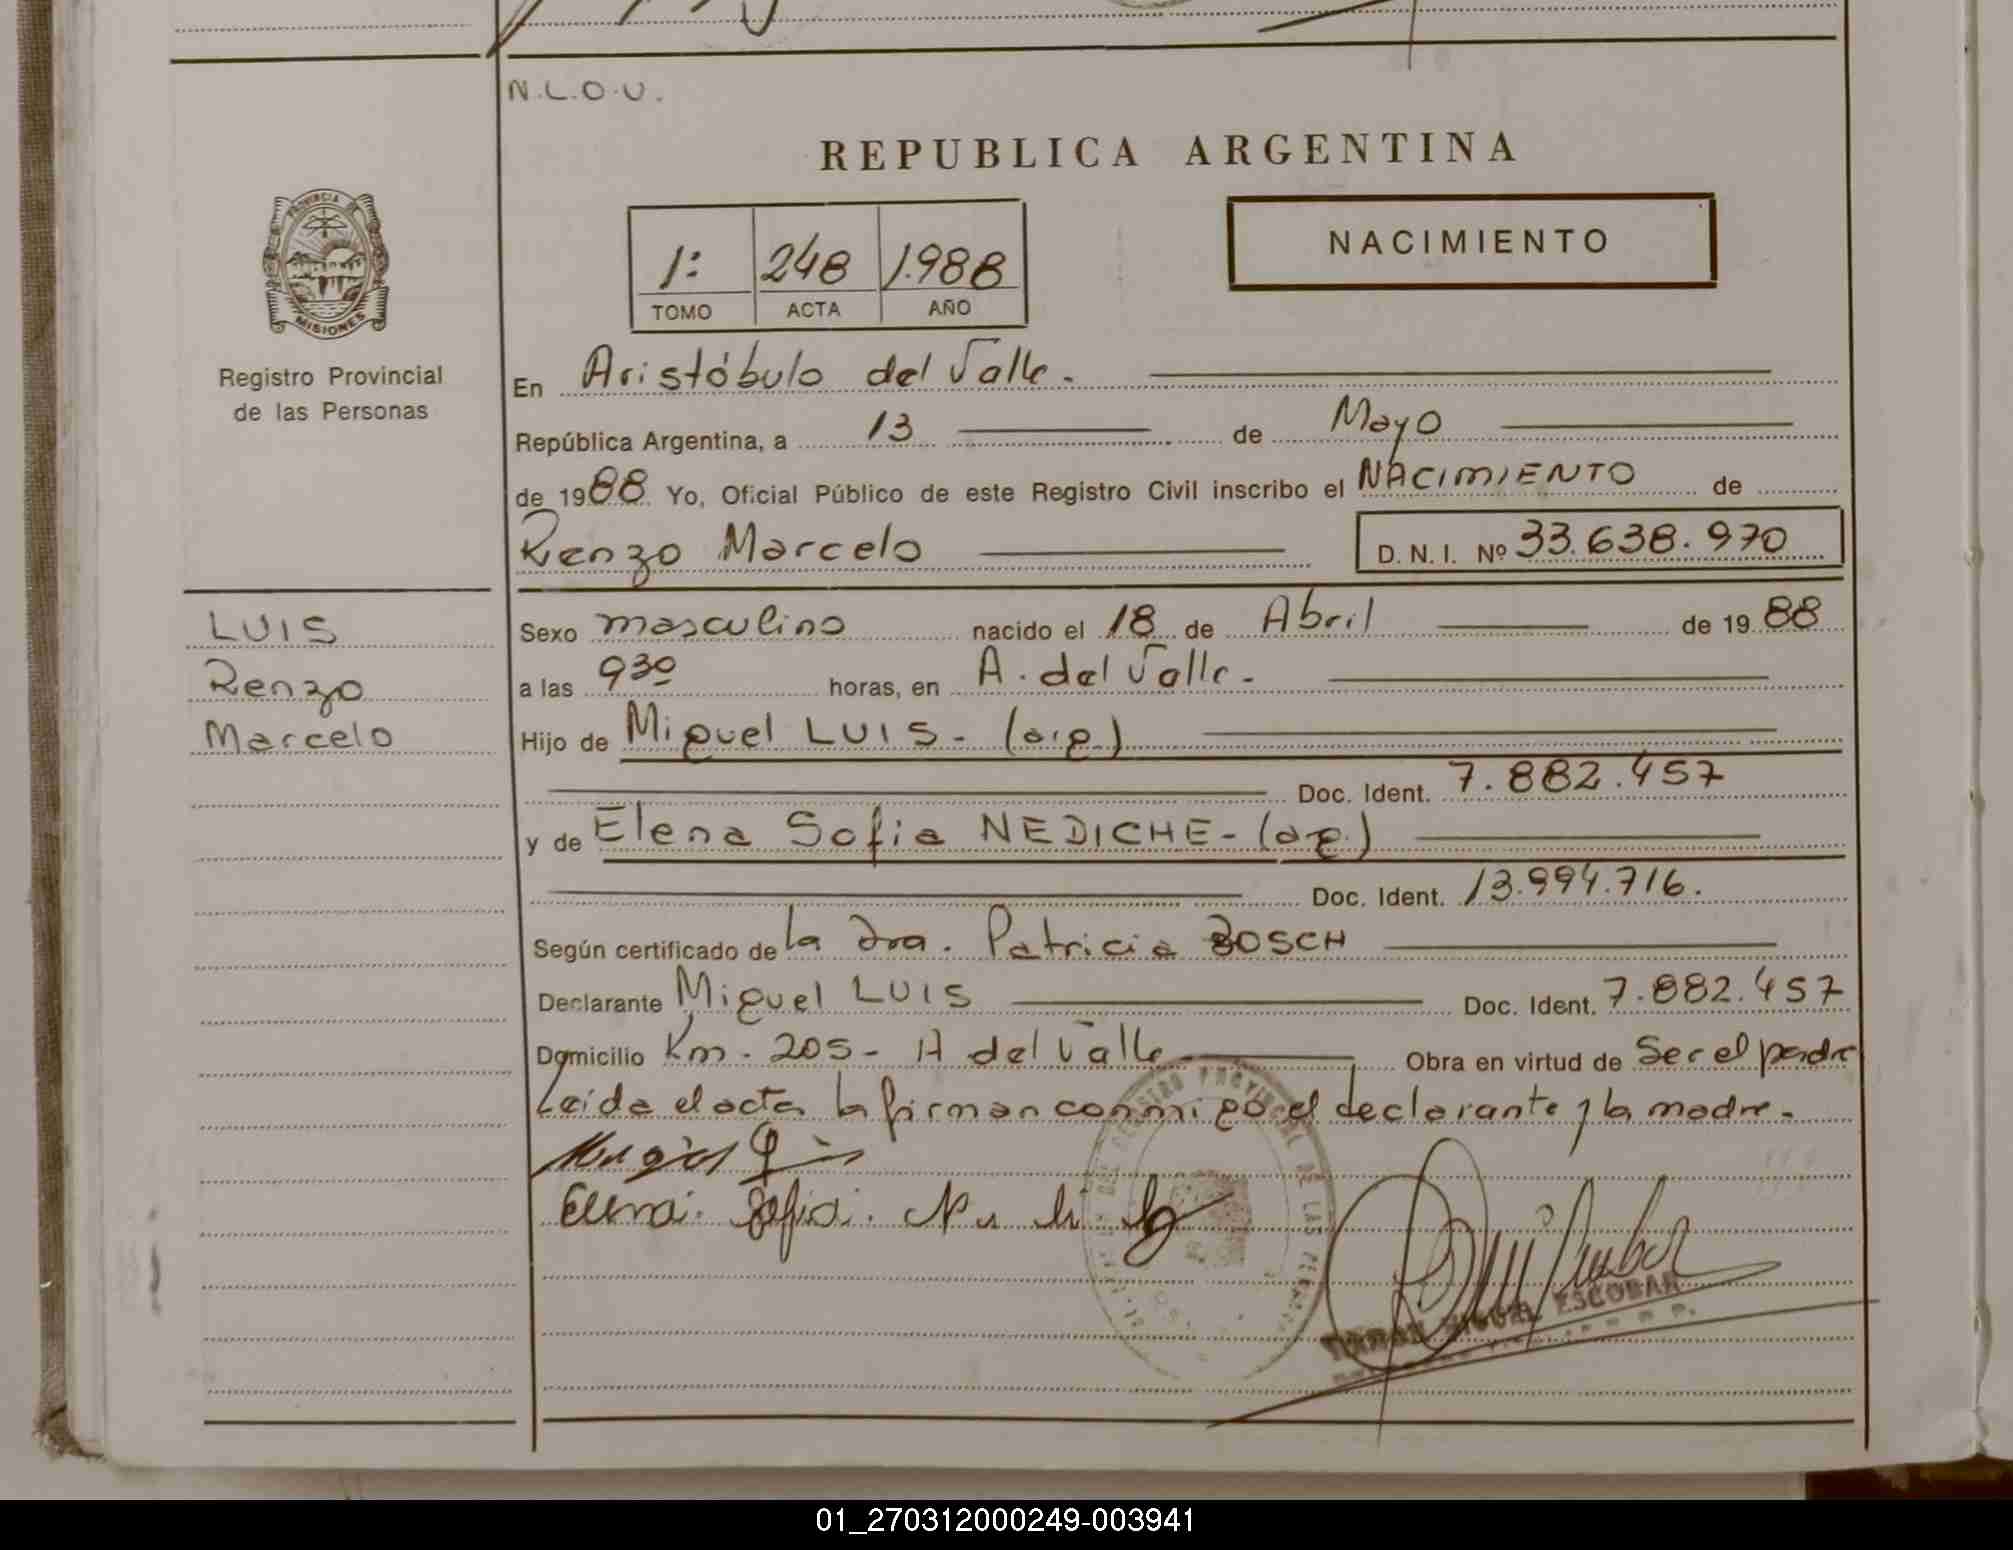 N.L.O.U.
REPUBLICA ARGENTINA
PROVINCIA DE
MISIONES
1: 248 1.988
TOMO ACTA AÑO
NACIMIENTO
Registro Provincial
de las Personas
En Aristóbulo del Valle.
República Argentina, a 13 de Mayo
de 1988 Yo, Oficial Público de este Registro Civil inscribo el NACIMIENTO de
Renzo Marcelo D. N. I. Nº 33.638.970
LUIS
Renzo
Marcelo
Sexo masculino nacido el 18 de Abril de 19 88
a las 9 30 horas, en A. del Valle.
Hijo de Miguel LUIS - (arg.)
Doc. Ident. 7.882.457
y de Elena Sofia NEDICHE - (arg.)
Doc. Ident. 13.994.716.
Según certificado de la Dra. Patricia BOSCH
Declarante Miguel LUIS Doc. Ident. 7.882.457
Domicilio Km. 205 - A del Valle Obra en virtud de Ser el padre
Leida el acta la firman conmigo el declarante y la madre.
Elena Sofia
REGISTRO PROVINCIAL DE LAS PERSONAS
MIGUEL ESCOBAR
01_270312000249-003941